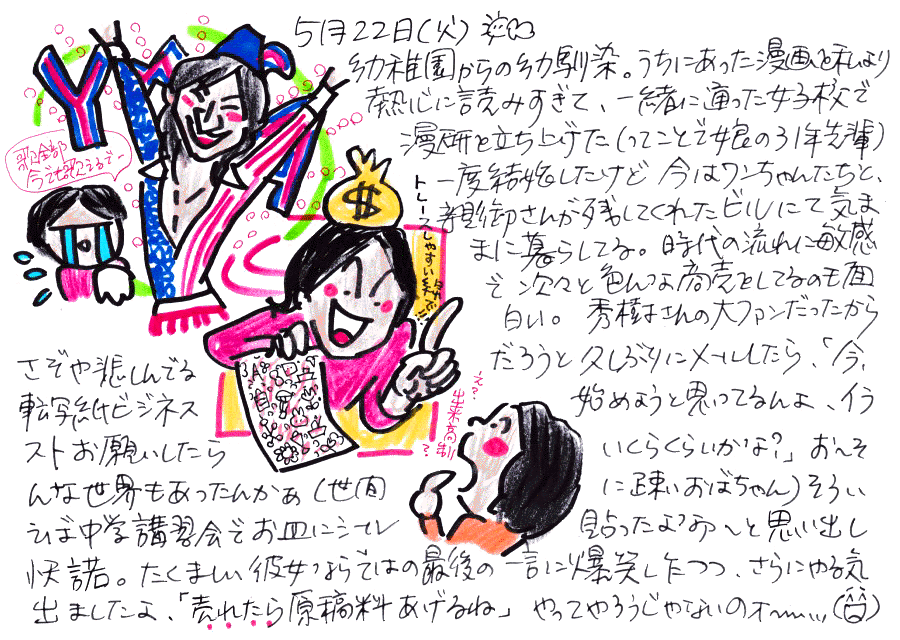 5月22日(火)
幼稚園からの幼馴染。うちにあった漫画を私より
熱心に読みすぎて、一緒に通った女子校で
漫研を立ち上げた(ってことで娘の31年先輩)
一度結婚したけど今はワンちゃんたちと、
親御さんが残してくれたビルにて気ま
まに暮らしてる。時代の流れに敏感
で次々と色んな商売をしてるのも面
白い。秀樹さんの大ファンだったから
さぞや悲しんでる だろうと久しぶりにメールしたら、「今、
転写紙ビジネス 始めようと思ってるんよ、イラ
ストお願いしたら いくらくらいかな?」お〜そ
んな世界もあったんかぁ(世間 に疎いおばちゃん)そうい
えば中学講習会でお皿にシール 貼ったよなあ〜と思い出し
快諾。たくましい彼女ならではの最後の一言に爆笑したつつ、さらにやる気
出ましたよ、「売れたら原稿料あげるね」やってやろうじゃないのオ〜〜…
YMCA
歌全部
今でも歌えるでー
$
トレースしやすい
え?
出来高制?